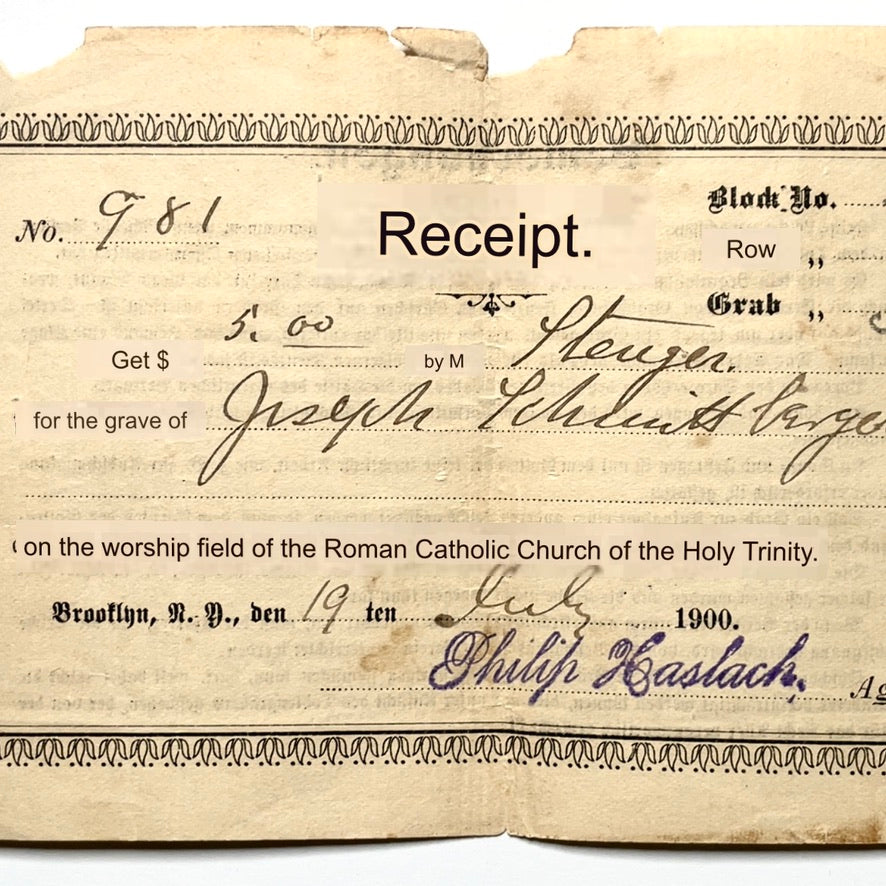 Block No.
No. 981 Receipt.
Row „
Grab „
5.00
Get $ by M Stenger.
for the grave of Joseph Schmittberge
on the worship field of the Roman Catholic Church of the Holy Trinity.
Brooklyn, N. Y., den 19 ten July 1900.
Philip Haslach, Ag